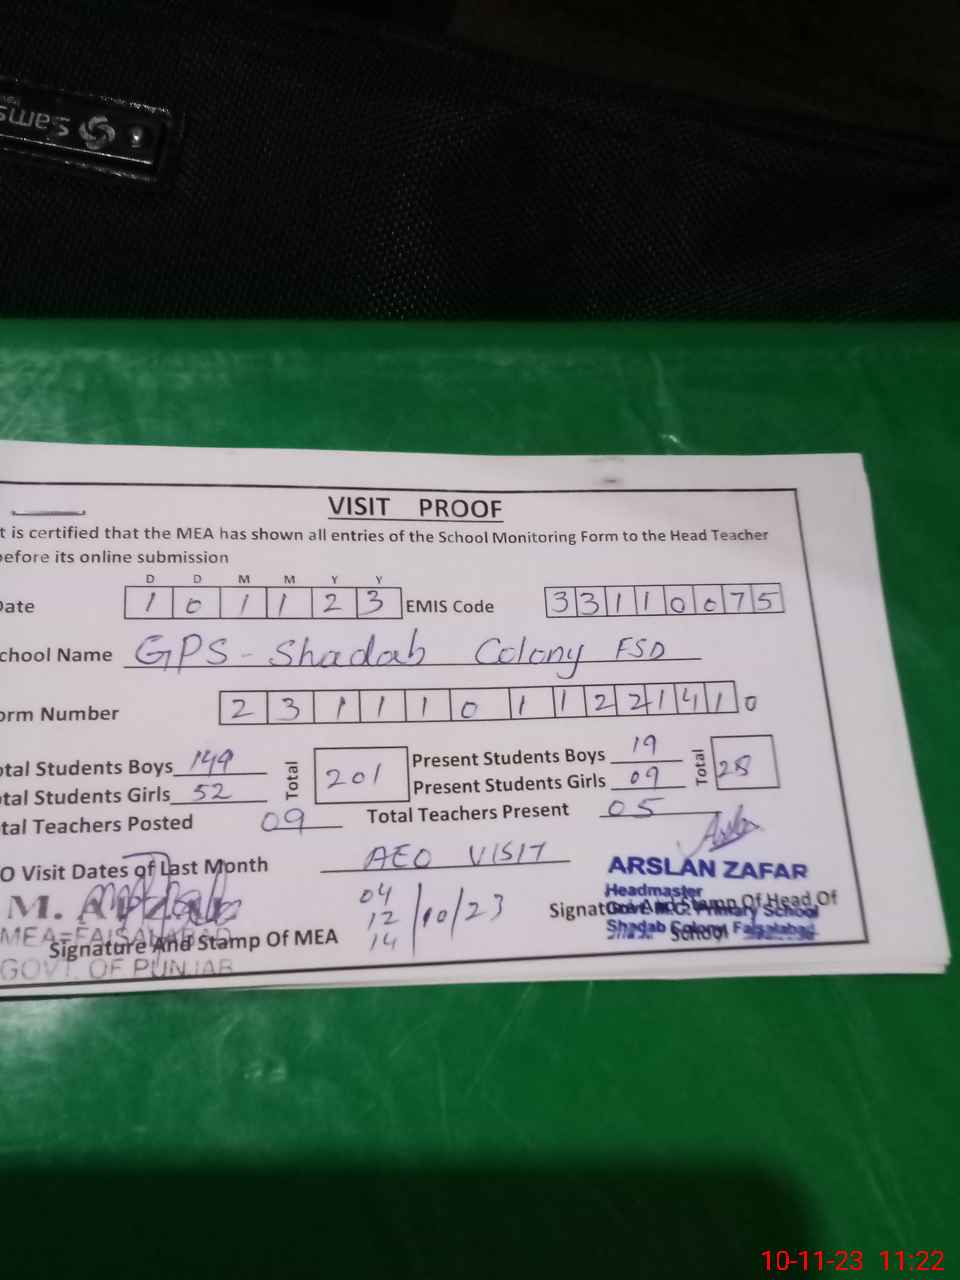 Sams
VISIT PROOF
t is certified that the MEA has shown all entries of the School Monitoring Form to the Head Teacher
before its online submission
D D M M Y Y
Date 1 0 1 1 2 3 EMIS Code 3 3 1 1 0 0 7 5
chool Name GPS - Shadab Colony FSD
orm Number 2 3 1 1 1 0 1 1 2 2 1 4 1 0
otal Students Boys 149 Total 201 Present Students Boys 19 Total 28
otal Students Girls 52 Present Students Girls 09
tal Teachers Posted 09 Total Teachers Present 05
O Visit Dates of Last Month AEO VISIT
04
12 /10/23
14
M.
MEA-FAISALABAD
Signature And Stamp Of MEA
GOVT. OF PUNJAB
ARSLAN ZAFAR
Headmaster
Signature And Stamp Of Head Of
Govt. M.C. Primary School
Shadab Colony Faisalabad
School
10-11-23 11:22